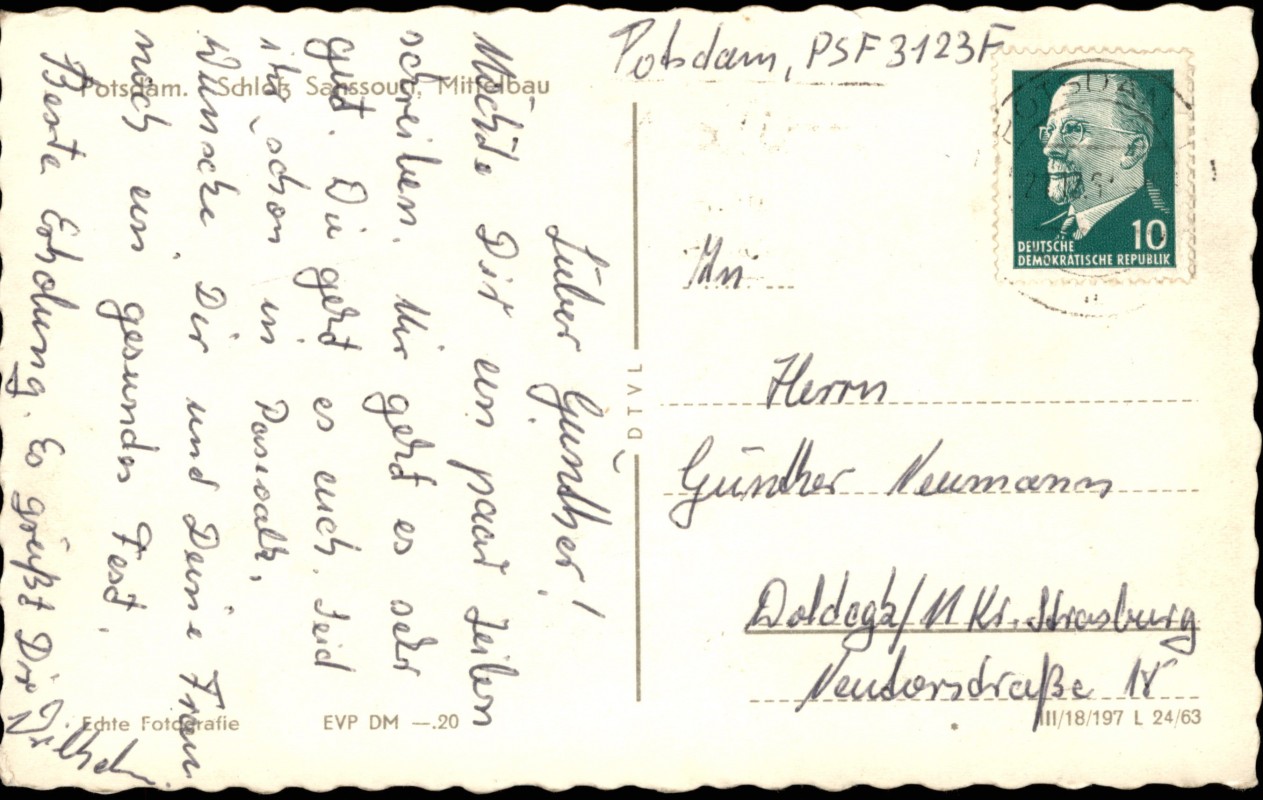 Potsdam. Schloß Sanssouci, Mittelbau
Lieber Günther!
Möchte Dir ein paar Zeilen
schreiben. Mir geht es sehr
gut. Wie geht es euch. Seid
ihr schon in Pasewalk,
Wünsche Dir und Deine Frau
noch ein gesundes Fest.
Beste Erholung. Es grüßt Dir
Wilhelm
Echte Fotografie
EVP DM —.20
DTVL
Potsdam, PSF 3123F
POTSDAM
10
DEUTSCHE
DEMOKRATISCHE REPUBLIK
An
Herrn
Günther Neumann
Woldegk/M Kr. Strasburg
Neutorstraße 18
III/18/197 L 24/63